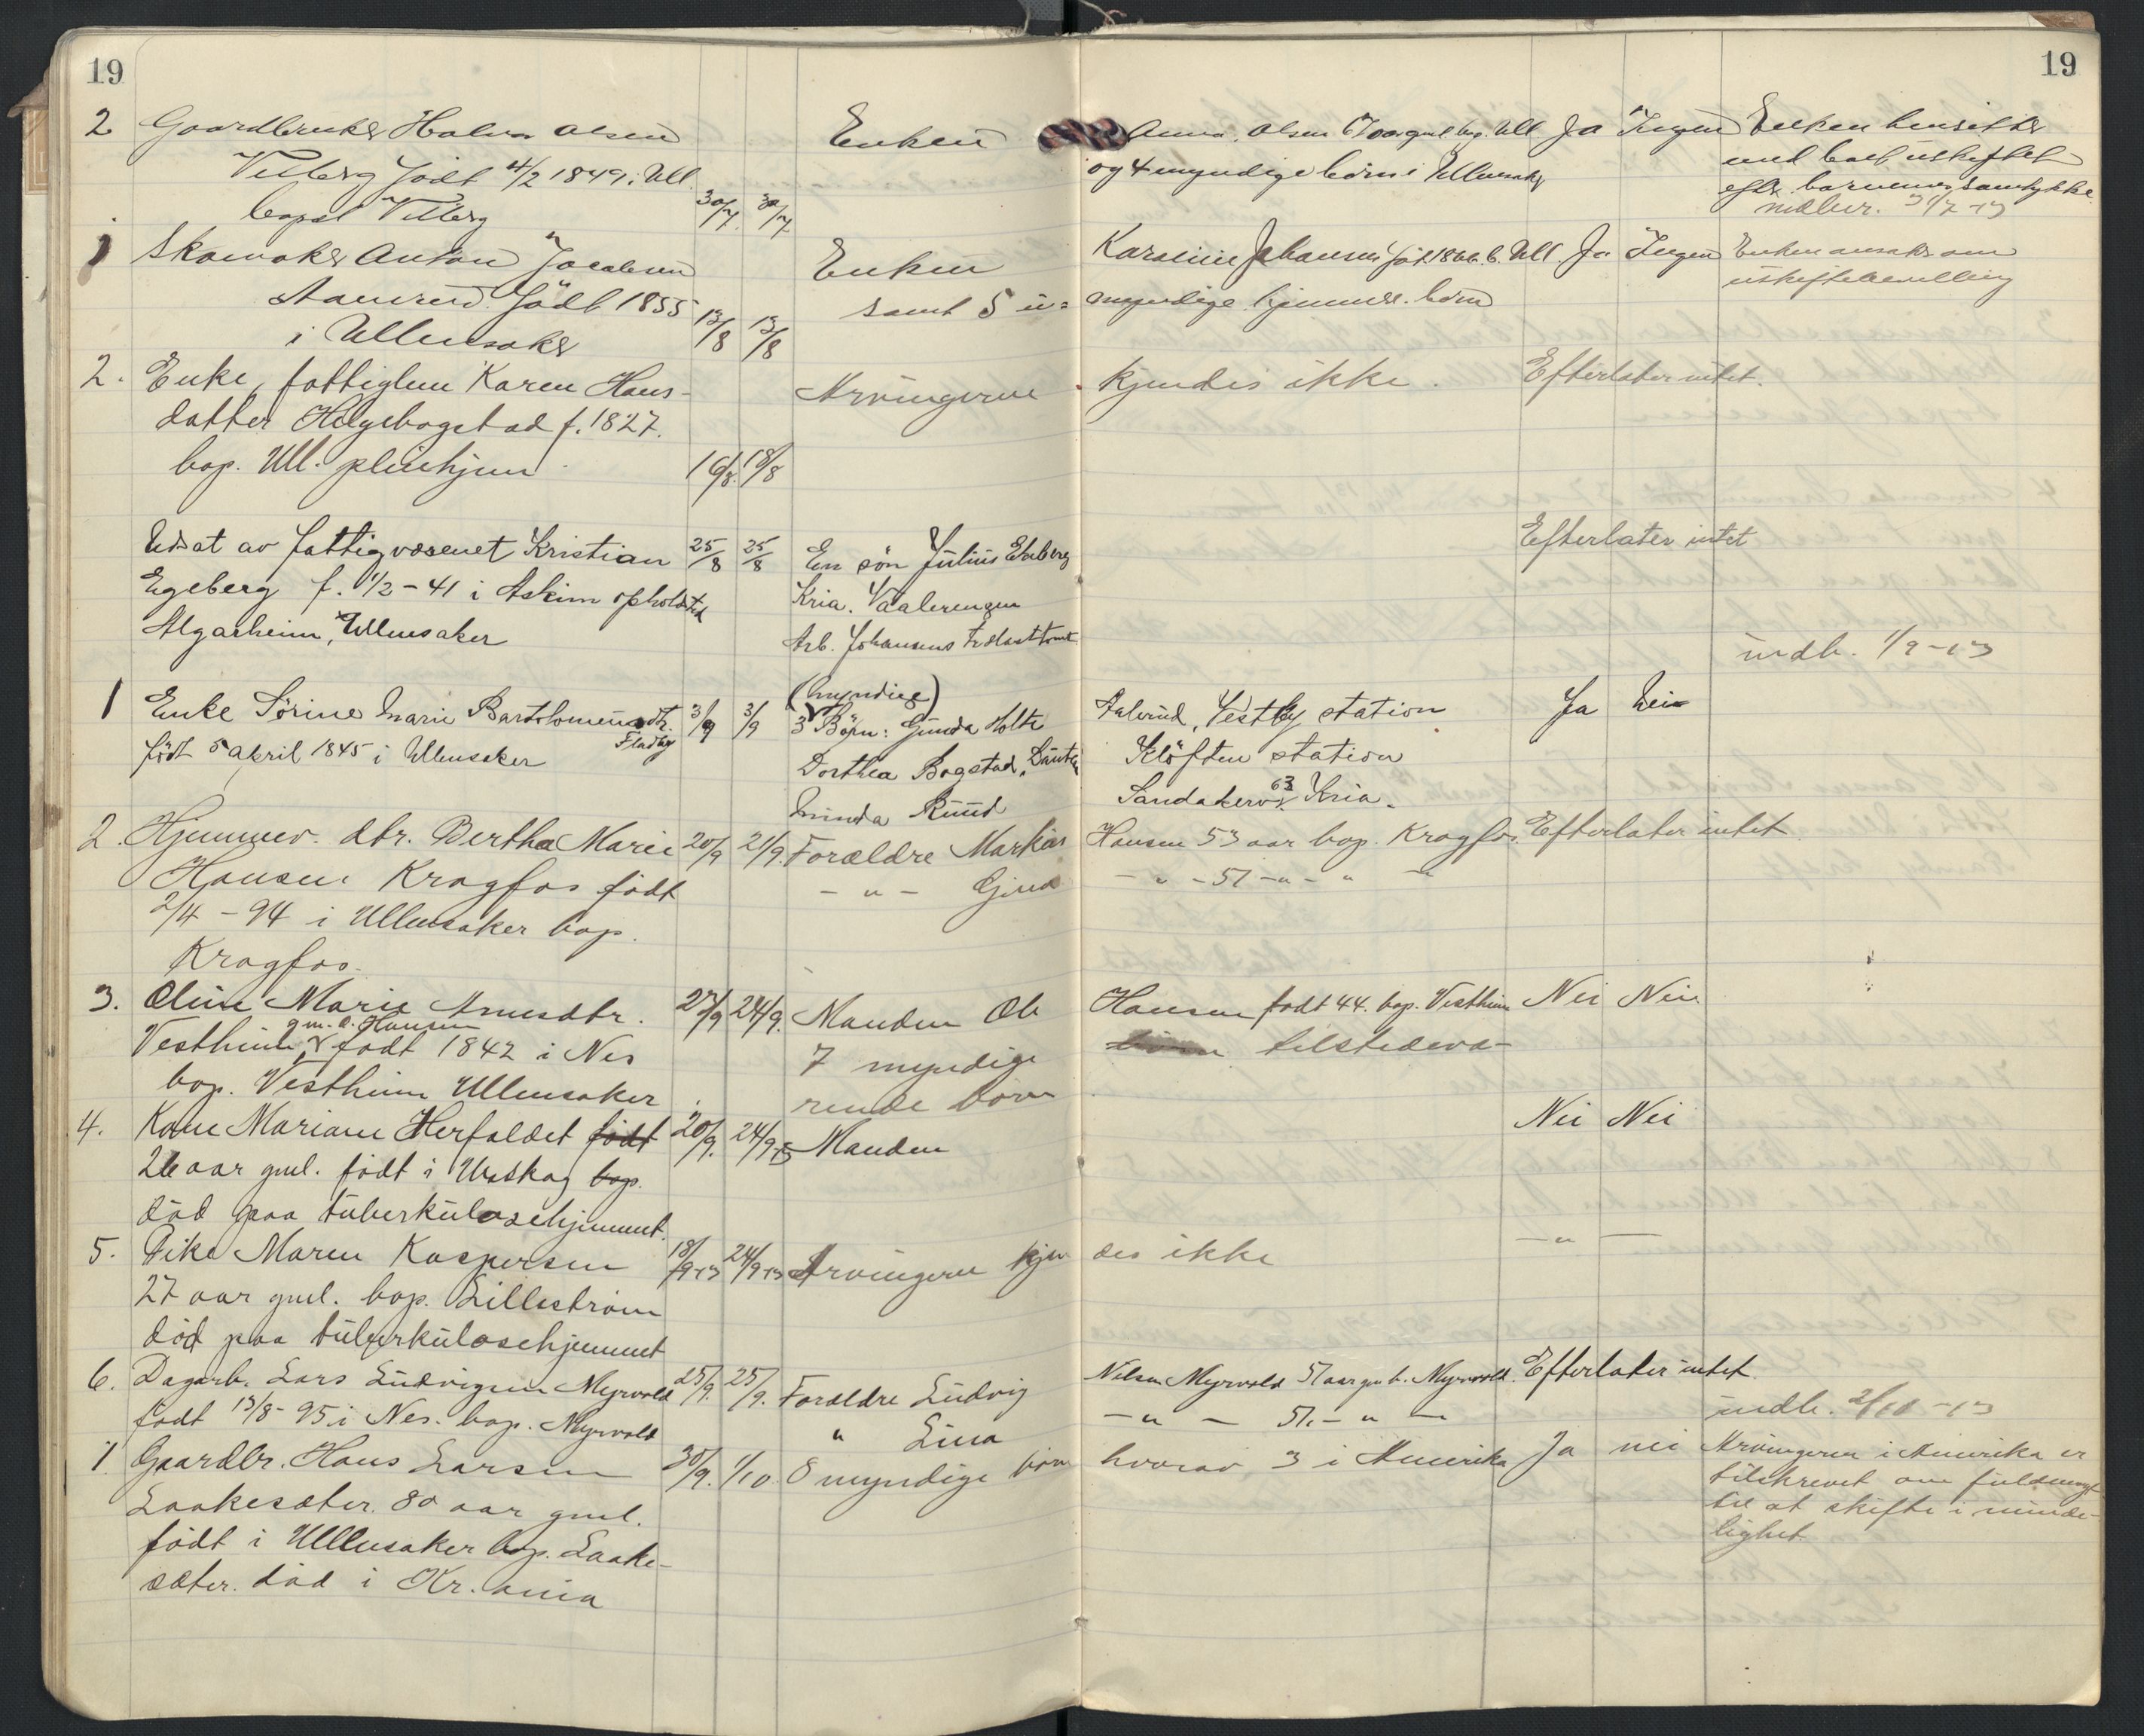 19
19
2 Gaardbruker Halvor Olsen
Vilberg født 4/2 1849 i Ull.
bopæl Vilberg
30/7. 30/7
Enken
Anna Olsen 67 aar gml bop. Ull
og 4 myndige børn i Ullensaker
Ja Ingen
Enken hensitter
med boet uskiftet
efter barnenes samtykke
indber. 31/7 -13
1 Skomaker Anton Jacobsen
født 1855
i Ullensaker
13/8 13/8
Enken
samt 5 u=
Karoline Johansen født 1866. b. Ull.
myndige hjemmev. børn
Ja Ingen
Enken ansøker om
uskiftebevilling
2. Enke, fattiglem Karen Hans-
datter Helgebogstad f. 1827.
bop. Ull. pleiehjem
16/8. 18/8
Arvingerne
kjendes ikke.
Efterlater intet.
Udsat av fattigvæsenet Kristian
Egeberg f. 1/2 - 41 i Askim opholdsted
Algarheim, Ullensaker
25/8 25/8
En søn Julius Ekeberg
Kria. Vaalerengen
Arb. Johansens
Efterlater intet
indb. 1/9 -13
1 Enke Sørine Marie Bartolomeusdtr.
Fladby
født 5 april 1845 i Ullensaker
3/9 3/9
(myndige)
3 Børn: Gunda Holte
Dorthea Bogstad,
Minda Ruud
Aalerud, Vestby station
Kløften station
Sandakervn. 63 Kria.
Ja Nei
2. Hjemmev. dtr. Bertha Marie
Hansen Kragfos født
2/4 - 94 i Ullensaker bop.
Kragfos.
20/9 21/9.
Forældre Markus
— " — Gina
Hansen 53 aar bop. Kragfos.
— " — 51 — " — " —
Efterlater intet
3. Oline Marie Arnesdtr.
gm. O. Hansen
Vestheim født 1842 i Nes
bop. Vestheim Ullensaker
23/9 24/9.
Manden Ole
7 myndige
rende børn
Hansen født 44. bop. Vestheim
børn tilstedevæ-
Nei Nei
4. Kane Mariane Herfaldet født
26 aar gml. født i Urskog bop.
død paa tuberkulosehjemmet.
20/9. 24/9 13
Manden
Nei Nei
5. Pike Maren Kaspersen
27 aar gml. bop. Lillestrøm
død paa tuberkulosehjemmet
18/9-13 24/9-13
Arvingerne kjen
des ikke
— " —
6. Dagarb. Lars Ludvigsen Myrvold
født 13/8 - 95 i Nes. bop. Myrvold
25/9. 25/9.
Forældre Ludvig
" Lina
Nilsen Myrvold 51 aar gm b. Myrvold.
— " — 51. — " —
Efterlater intet.
indb. 2/10 -13
1 Gaardbr. Hans Larsen
Laakesæter. 80 aar gml.
født i Ullensaker bop. Laake-
sæter. død i Kr.ania
30/9. 1/10.
8 myndige børn
hvorav 3 i Amerika
Ja nei
Arvingerne i Amerika er
tilskrevet om fuldmagt
til at skifte i minde-
lighet.